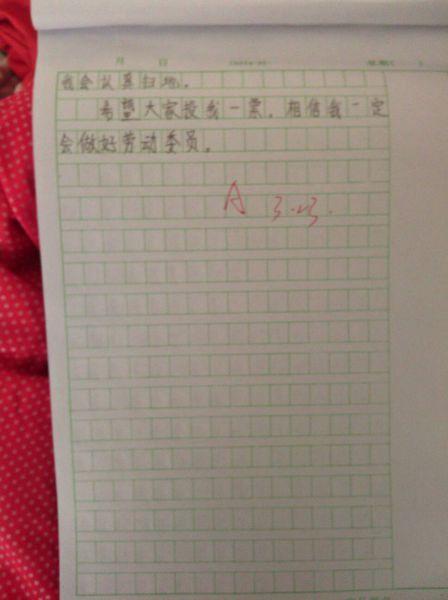 月 日
我会认真扫地。
希望大家投我一票，相信我一定
会做好劳动委员。
A 3.23.